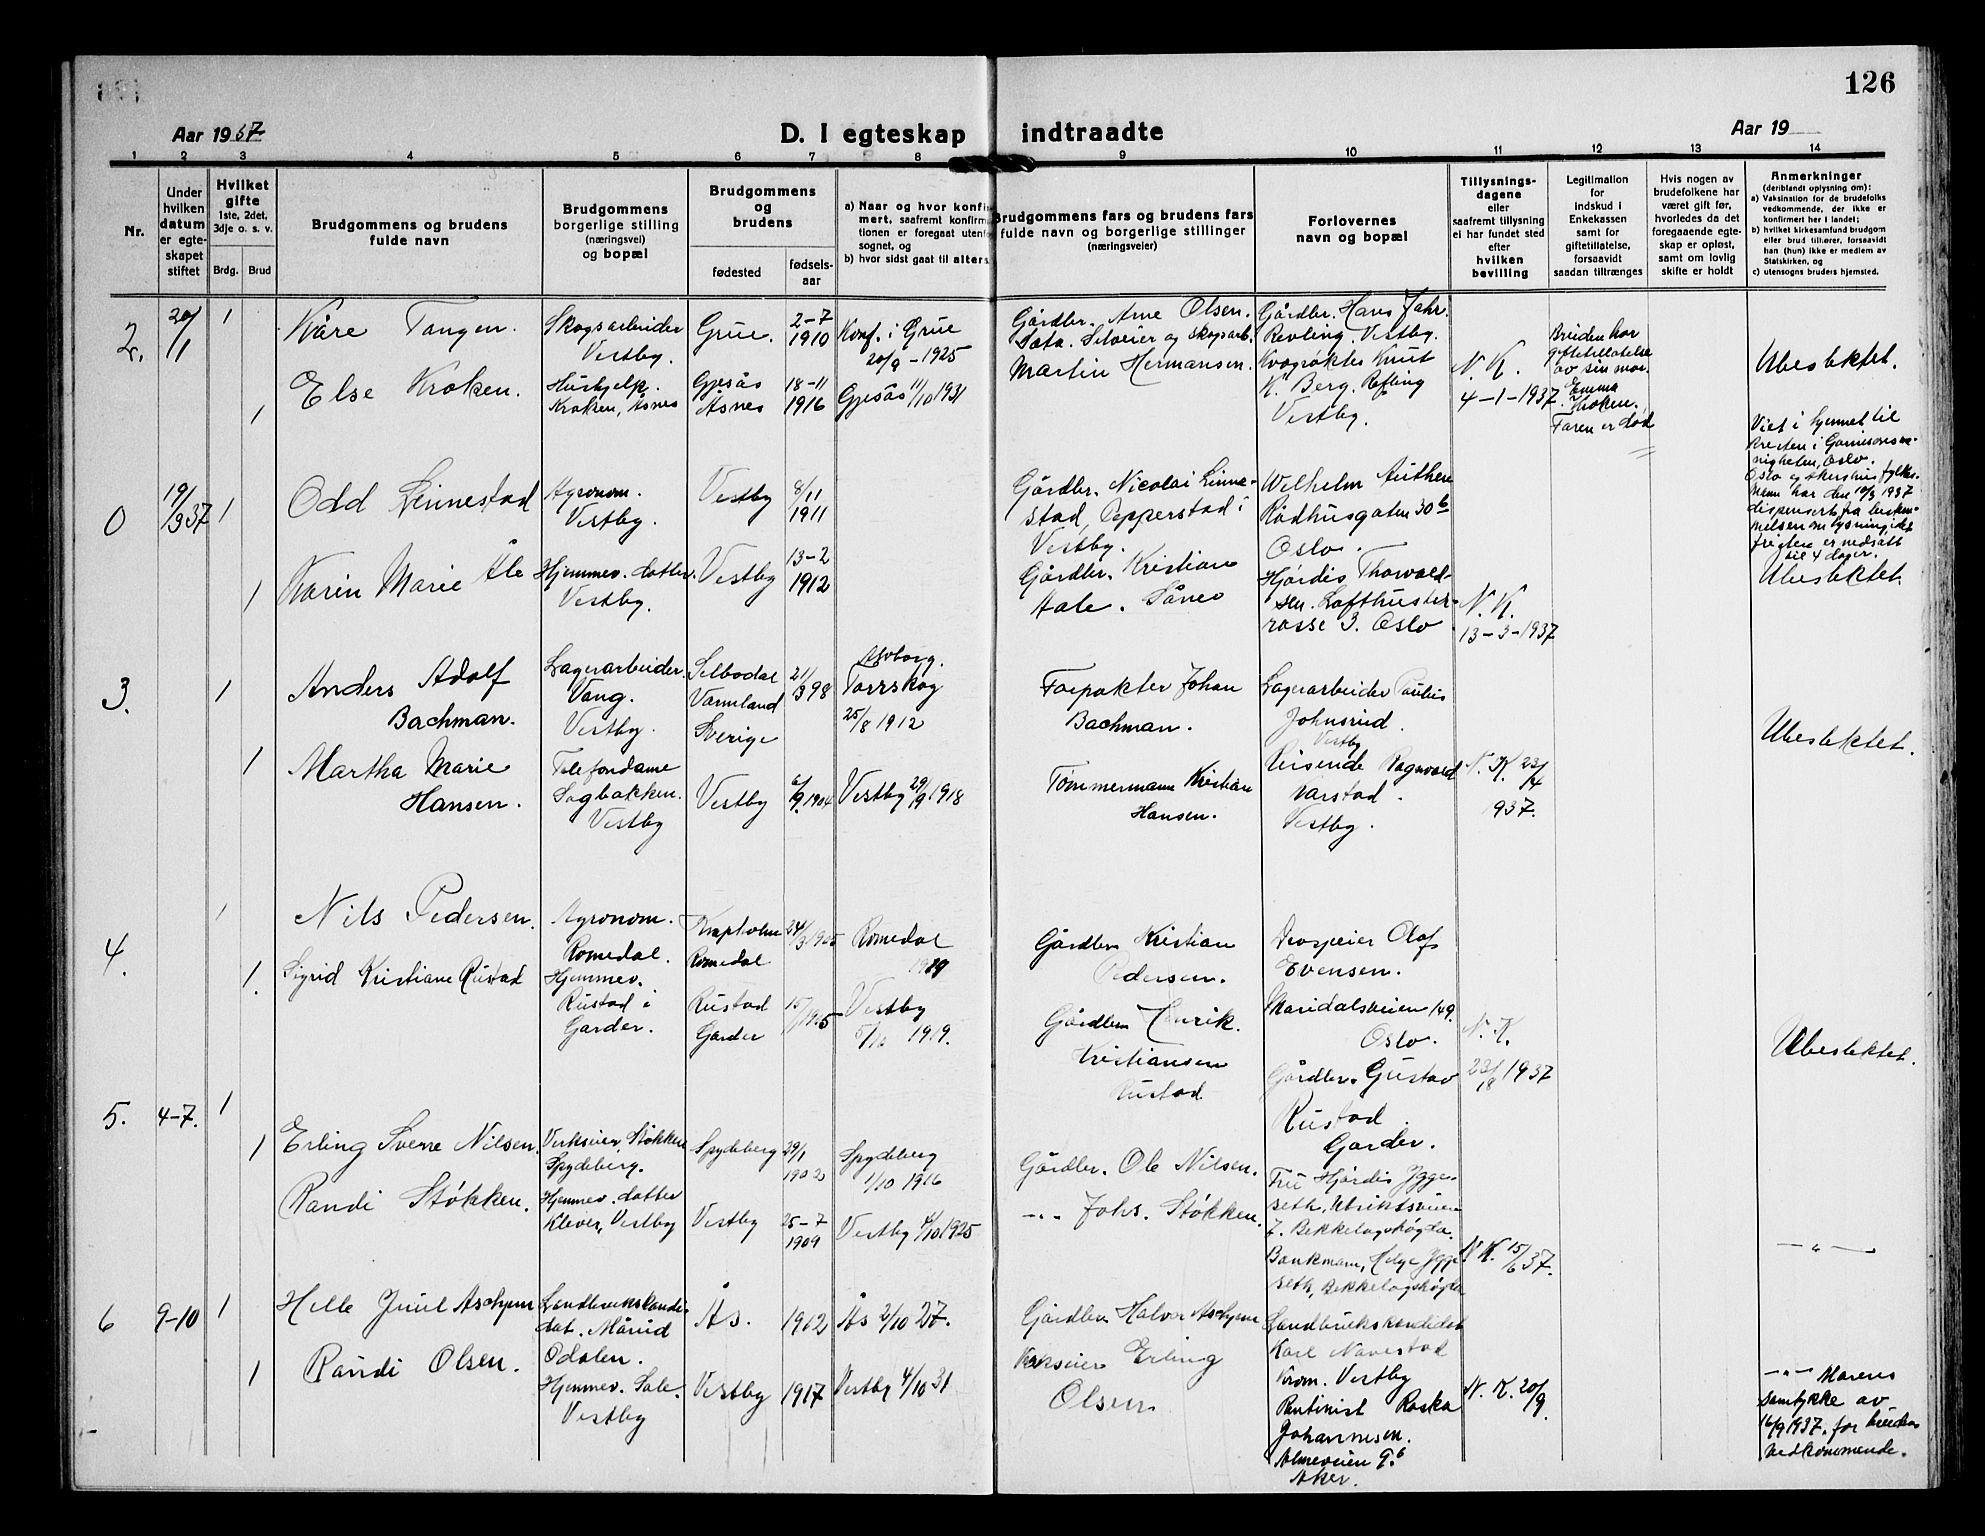 126
Aar 1937
D. I egteskap indtraadte
Aar 19
1 2 3 4 5 6 7 8 9 10 11 12 13 14
Nr.
Under
hvilken
datum
er egte-
skapet
stiftet
Hvilket
gifte
1ste, 2det,
3dje o. s. v.
Brdg. Brud
Brudgommens og brudens
fulde navn
Brudgommens
borgerlige stilling
(næringsvei)
og bopæl
Brudgommens
og
brudens
fødested
fødsels-
aar
a) Naar og hvor konfir-
mert, saafremt konfirm
tionen er foregaat uten
sognet, og
b) hvor sidst gaat til alters
Brudgommens fars og brudens fars
fulde navn og borgerlige stillinger
(næringsveier)
Forlovernes
navn og bopæl
Tillysnings-
dagene
eller
saafremt tillysning
ei har fundet sted
efter
hvilken
bevilling
Legitimation
for
indskud i
Enkekassen
samt for
giftetillatelse,
forsaavidt
saadan tiltrænges
Hvis nogen av
brudefolkene har
været gift før,
hvorledes da det
foregaaende egte-
skap er opløst,
samt om lovlig
skifte er holdt
Anmerkninger
(deriblandt oplysning om):
a) Vaksination for de brudefolks
vedkommende, der ikke er
konfirmert her i landet;
b) hvilket kirkesamfund brudgom
eller brud tilhører, forsaavidt
han (hun) ikke er medlem av
Statskirken, og
c) utensogns bruders hjemsted.
2.
20/1
1
Kåre Tangen.
Skogsarbeider
Vestby.
Grue.
2-7
1910
Konf. i Grue
20/9-1925
Gårdbr. Arne Olsen.
Gårdbr. Hans Jahr.
Revling. Vestby.
1
Else Kroken.
Hushjelp.
Kroken, Åsnes
Gjesås
Åsnes
18-11
1916
Gjesås 11/10 1931
Selveier og skogsarb.
Martin Hermansen.
Kvegrøkter Knut
K. Berg. Røfling
Vestby.
N. K.
4-1-1937
Bruden har
giftetillatelse
av sin mor.
Emma
Kroken.
Faren er død
Ubeslektet.
0
19/3 37
1
Odd Linnestad
Agronom.
Vestby.
Vestby
8/11
1911
Gårdbr. Nicolai Linne-
stad, Pepperstad i
Vestby.
Wilhelm Authen
Rådhusgaten 30b
Oslo.
Viet i hjemmet til
presten i Garnisonsme-
nigheten, Oslo.
Oslo og Akershus fylkes-
menn har den 10/3 1937
dispensert fra bestem-
melsen om lysning idet
fristen er nedsatt
til 4 dager.
Ubeslektet.
1
Karin Marie Åle
Hjemmev. datter.
Vestby.
Vestby
13-2
1912
Gårdbr. Kristian
Aale. Såner
Hjørdis Thorvald-
sen. Lofthuster-
rasse 3. Oslo
N. K.
13-3-1937
3.
1
Anders Adolf
Bachman.
Lagerarbeider.
Vang.
Vestby.
Silbodal
Varmland
Sverige
21/3 98
Torrskog
25/8 1912
Forpakter Johan
Bachman.
Lagerarbeider Paulus
Johnsrud.
Vestby
Ubeslektet.
1
Martha Marie
Hansen.
Telefondame
Sagbakken.
Vestby
Vestby
6/9.1904
Vestby 29/9 1918
Tømmermann Kristian
Hansen.
Reisende Ragnvald
Varstad.
Vestby.
N. K. 23/4
937.
4.
1
Nils Pedersen.
Agronom.
Romedal.
Romedal
24/3 1905
Romedal
1919
Gårdbr. Kristian
Pedersen.
Olaf
Evensen.
Maridalsveien 149.
Oslo.
1.
Sigrid Kristiane Rustad
Hjemmev.
Rustad i
Garder.
Rustad
Garder
1905
Vestby
5/10 1919.
Gårdbr. Henrik.
Kristiansen
Rustad
Gårdbr. Gustav
Rustad
Garder.
N. K.
23/8 1937
Ubeslektet.
5.
4-7.
1
Erling Sverre Nilsen.
Verkseier, Støkken
Spydeberg.
Spydeberg
29/1
1902
Spydeberg
1/10 1916
Gårdbr. Ole Nilsen.
Fru Hjørdis Ygge-
seth, Ulriksveien
7. Bekkelagshøgda.
1
Randi Støkken.
Hjemmev. datter
Kløver, Vestby
Vestby
25-7
1909
Vestby 4/10 1925
-"- Johs. Støkken.
Bankmann, Helge Ygge-
seth, Bekkelagshøgda
N. K. 15/6 37.
-"-
6
9-10
1
Helle Juul Aschjem
Landbrukskandi-
dat. Mårud
Odalen.
Ås.
1902
Ås 2/10 27.
Gårdbr. Halvor Aschjem
Landbrukskandidat
Karl Navestad
Krom. Vestby
1
Randi Olsen.
Hjemmev. Sole.
Vestby
Vestby
1917
Vestby 4/10 31
Verkseier Erling
Olsen
Rentenist Raska
Johannesen.
Almeveien 9.b
Aker.
N. K. 20/9.
-"- Morens
samtykke av
16/9 1937. for brudens
vedkommende.